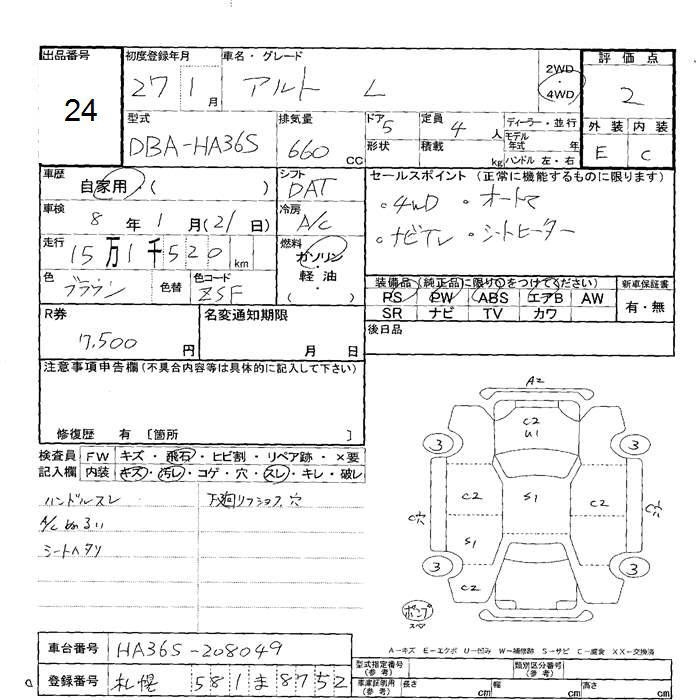 出品番号
24
初度登録年月
27 1 月
車名・グレード
アルト L
2WD
・
4WD
評価点
2
型式
DBA-HA36S
排気量
660 cc
ドア 5
形状
定員 4 人
積載 kg
ディーラー・並行
モデル年式 年
ハンドル 左・右
外装 内装
E C
車歴
自家用・( )
シフト
DAT
セールスポイント (正常に機能するものに限ります)
。4WD 。オートマ
。ナビTV 。シートヒーター
車検
8年 1月(21日)
冷房
A/C
走行
15万1千520km
燃料
ガソリン
・
軽油
( )
色
ブラウン
色替
色コード
ZSF
装備品(純正品に限り○をつけてください)
PS PW ABS エアB AW
SR ナビ TV カワ
新車保証書
有・無
R券
7,500 円
名変通知期限
月 日
後日品
注意事項申告欄(不具合内容等は具体的に記入して下さい)
修復歴 有 [箇所 ]
検査員記入欄
FW キズ・飛石・ヒビ割・リペア跡・×要
内装 キズ・汚レ・コゲ・穴・スレ・キレ・破レ
ハンドルスレ
下廻リフショク、穴
A/C ぬるい
シートヘタリ
A2
C2
U1
3 3
C2 S1 C2
C穴 C穴
S1
3 3
C2
ポンプ
スペア
A-キズ E-エクボ U-凹み W-補修跡 S-サビ C-腐食 XX-交換済
車台番号
HA36S-208049
登録番号
札幌 581 ま 8752
型式指定番号
(参考)
類別区分番号
(参考)
車庫証明用
(参考)
長さ cm 幅 cm 高さ cm